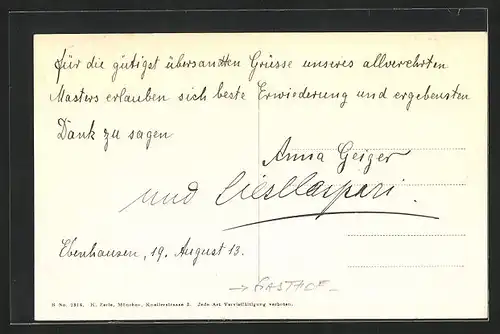 für die gütigst übersandten Grüsse unseres allverehrten
Masters erlauben sich beste Erwiederung und ergebensten
Dank zu sagen
Anna Geiger
und
Ebenhausen, 19. August 13.
München, Knöllerstrasse 3. Jede Art Vervielfältigung verboten.